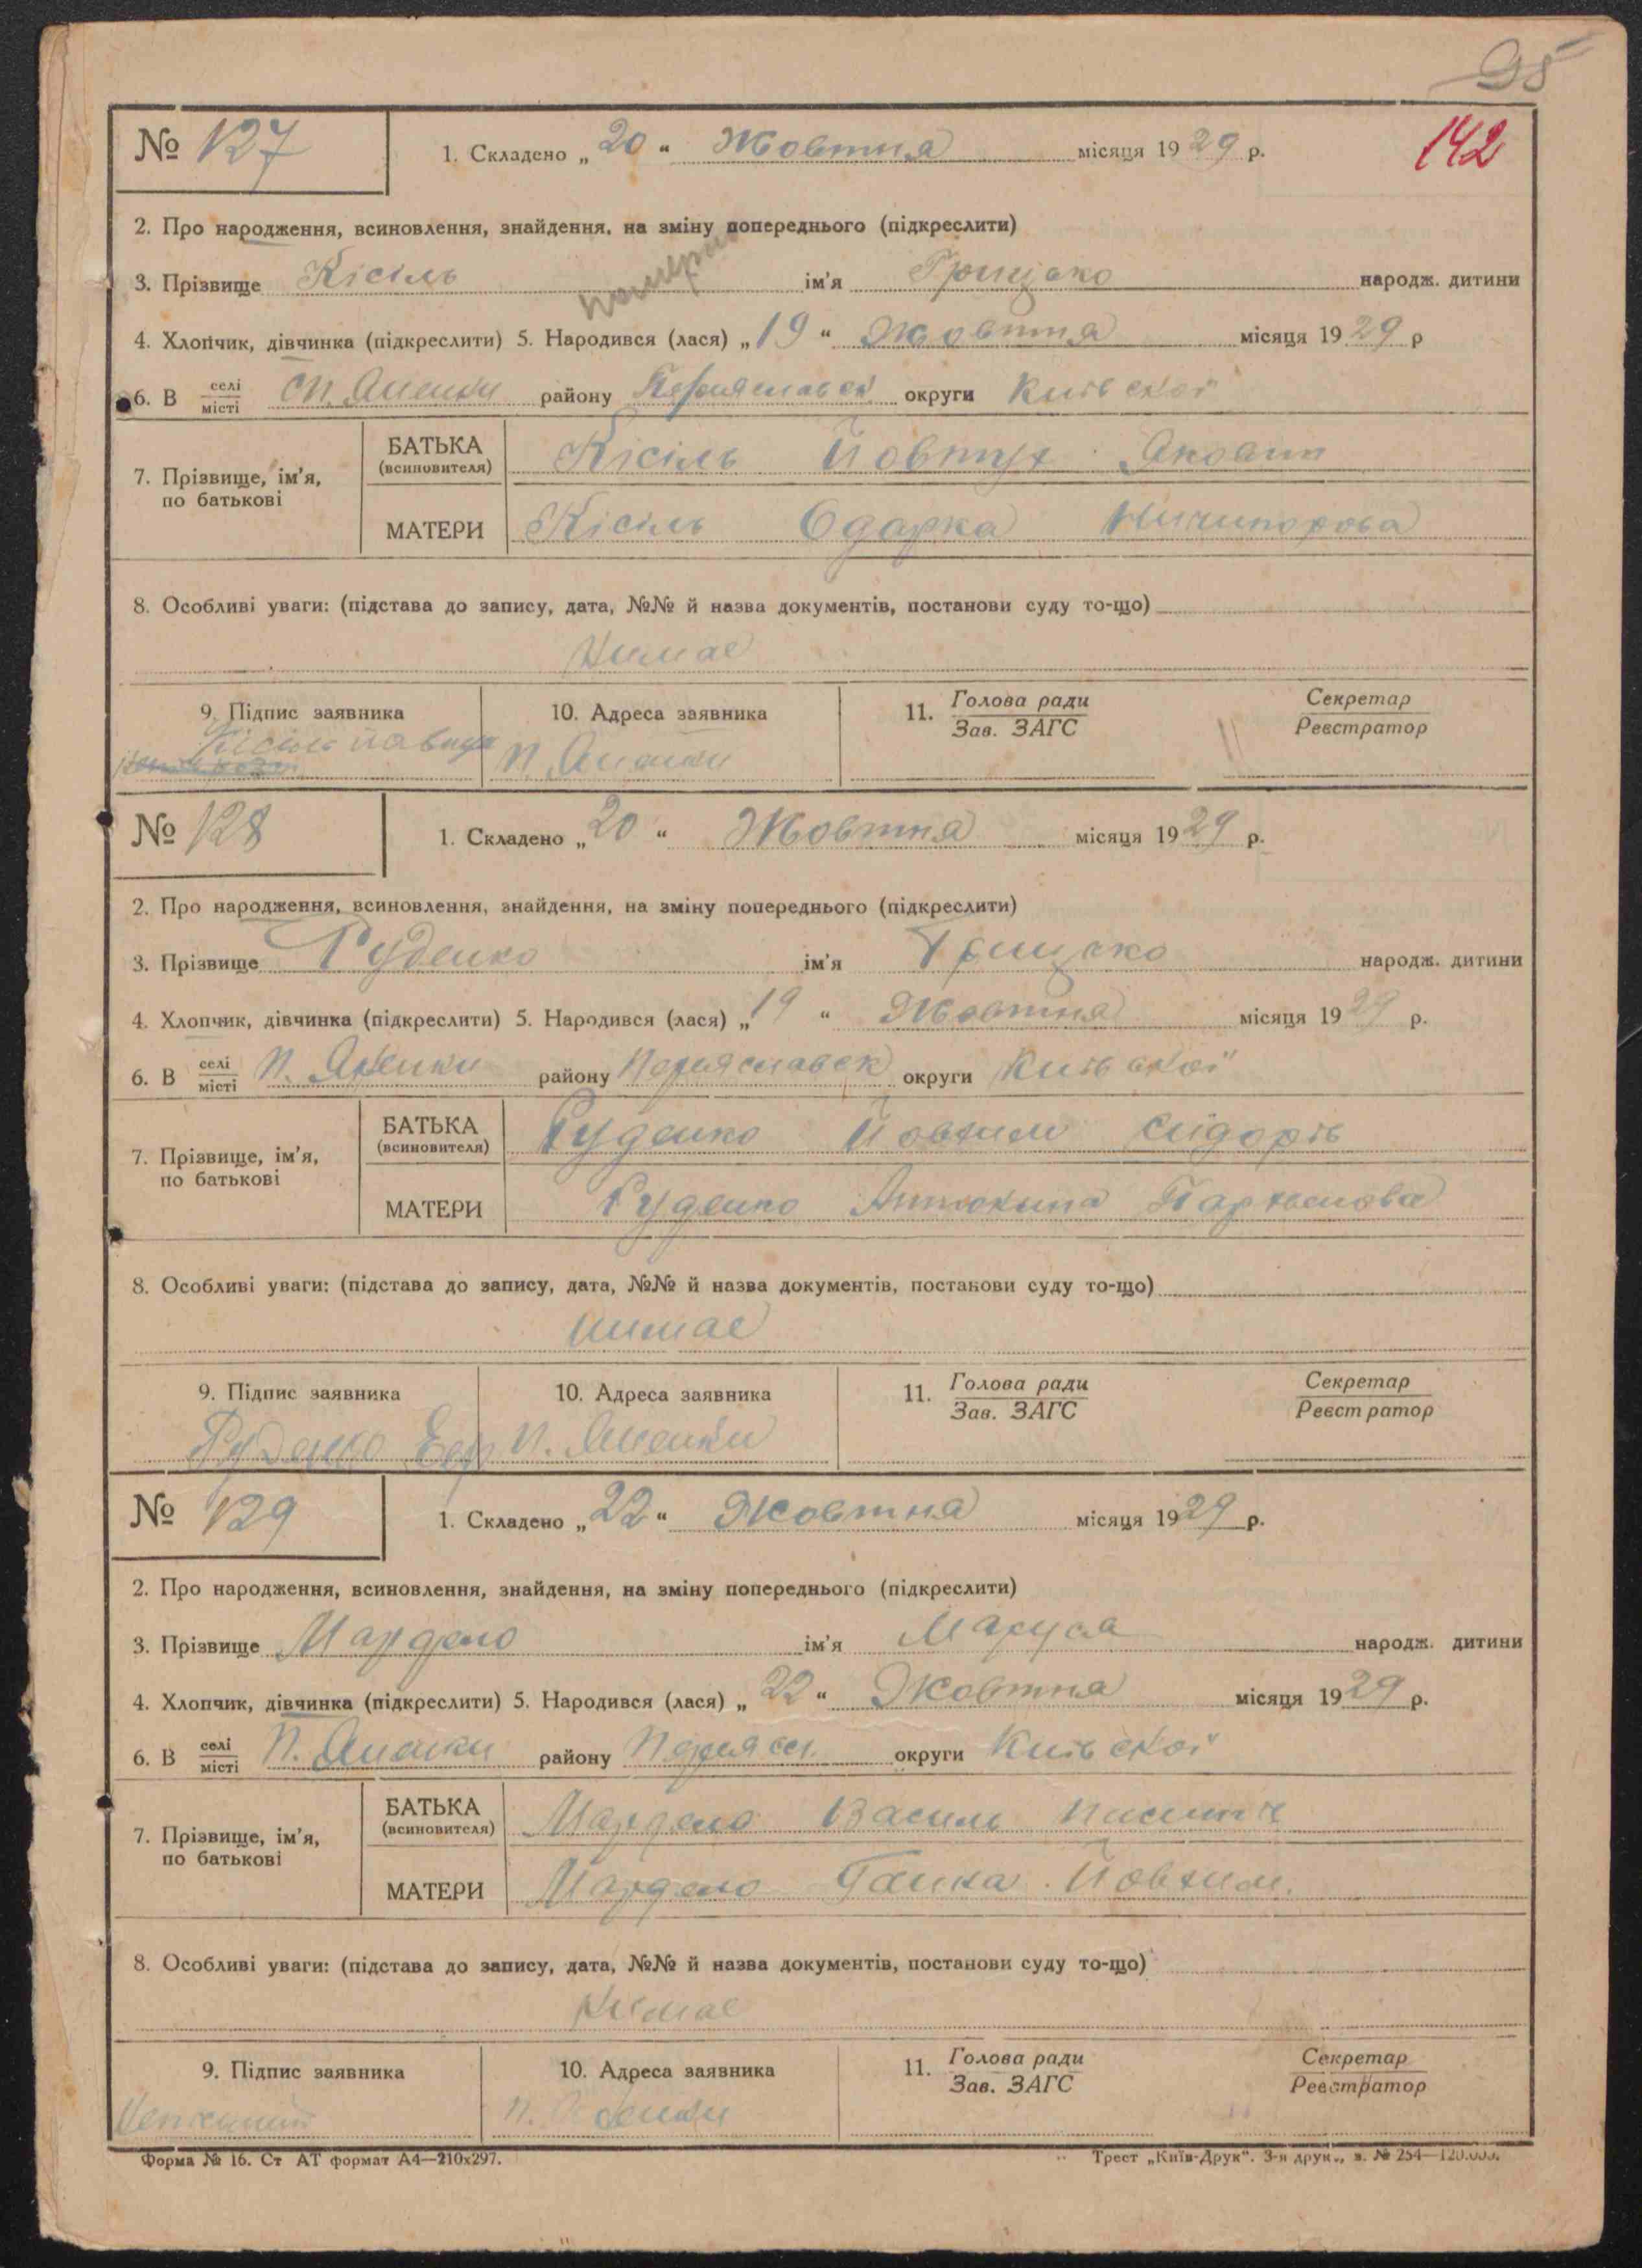 95
142
№ 127 1. Складено „20“ Жовтня місяця 1929 р.
2. Про народження, всиновлення, знайдення, на зміну попереднього (підкреслити)
3. Прізвище Кісіль ім'я Грицько народж. дитини
4. Хлопчик, дівчинка (підкреслити) 5. Народився (лася) „19“ Жовтня місяця 1929 р
6. В селі місті району округи Київської
7. Прізвище, ім'я, по батькові
БАТЬКА (всиновителя) Кісіль Йовтух
МАТЕРИ Кісіль Одарка Ничипорова
8. Особливі уваги: (підстава до запису, дата, №№ й назва документів, постанови суду то-що)
Нимає
9. Підпис заявника 10. Адреса заявника 11. Голова ради Зав. ЗАГС Секретар Реєстратор
Кісіль п.
№ 128 1. Складено „20“ Жовтня місяця 1929 р.
2. Про народження, всиновлення, знайдення, на зміну попереднього (підкреслити)
3. Прізвище Руденко ім'я Грицько народж. дитини
4. Хлопчик, дівчинка (підкреслити) 5. Народився (лася) „19“ Жовтня місяця 1929 р.
6. В селі місті п. Яненки району Переяславськ округи Київської
7. Прізвище, ім'я, по батькові
БАТЬКА (всиновителя) Руденко Йовхим Сидорів
МАТЕРИ Руденко Пархомова
8. Особливі уваги: (підстава до запису, дата, №№ й назва документів, постанови суду то-що)
Нимає
9. Підпис заявника 10. Адреса заявника 11. Голова ради Зав. ЗАГС Секретар Реєстратор
Руденко п. Яненки
№ 129 1. Складено „22“ Жовтня місяця 1929 р.
2. Про народження, всиновлення, знайдення, на зміну попереднього (підкреслити)
3. Прізвище ім'я Маруся народж. дитини
4. Хлопчик, дівчинка (підкреслити) 5. Народився (лася) „22“ Жовтня місяця 1929 р.
6. В селі місті п. Яненки району округи Київської
7. Прізвище, ім'я, по батькові
БАТЬКА (всиновителя) Василь
МАТЕРИ Ганка Йовхим.
8. Особливі уваги: (підстава до запису, дата, №№ й назва документів, постанови суду то-що)
Нимає
9. Підпис заявника 10. Адреса заявника 11. Голова ради Зав. ЗАГС Секретар Реєстратор
п. Яненки
Форма № 16. Ст АТ формат А4—210х297. Трест „Київ-Друк“. 3-я друк., з. № 254—120.000.